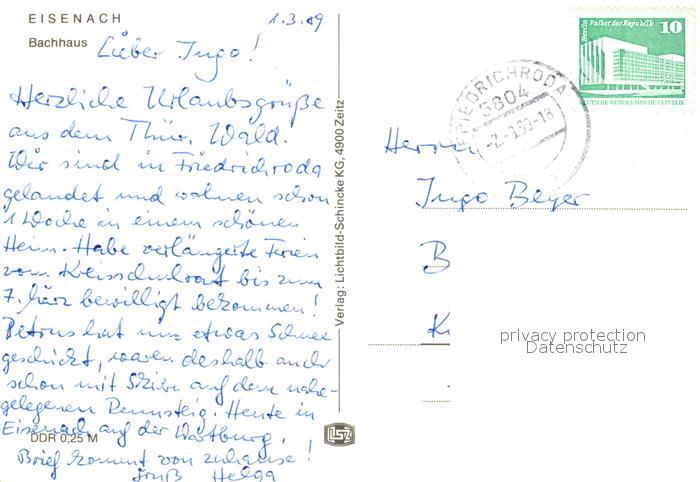 EISENACH
Bachhaus
1.3.89
Lieber Ingo!
Herzliche Urlaubsgrüße
aus dem Thür. Wald.
Wir sind in Friedrichroda
gelandet und wohnen schon
1 Woche in einem schönen
Heim. Habe verlängerte Ferien
vom Kreisschulrat bis zum
7. März bewilligt bekommen!
Petrus hat uns etwas Schnee
geschickt, waren deshalb auch
schon mit Skiern auf dem nahe-
gelegenen Rennsteig. Heute in
Eisenach auf der Wartburg.
DDR 0,25 M
Brief kommt von zuhause!
Gruß Helga
Verlag: Lichtbild-Schincke KG, 4900 Zeitz
Berlin Palast der Republik
10
DEUTSCHE DEMOKRATISCHE REPUBLIK
FRIEDRICHRODA
5804
-2.-3.89-18
Herrn
Ingo Beyer
B
K
privacy protection
Datenschutz